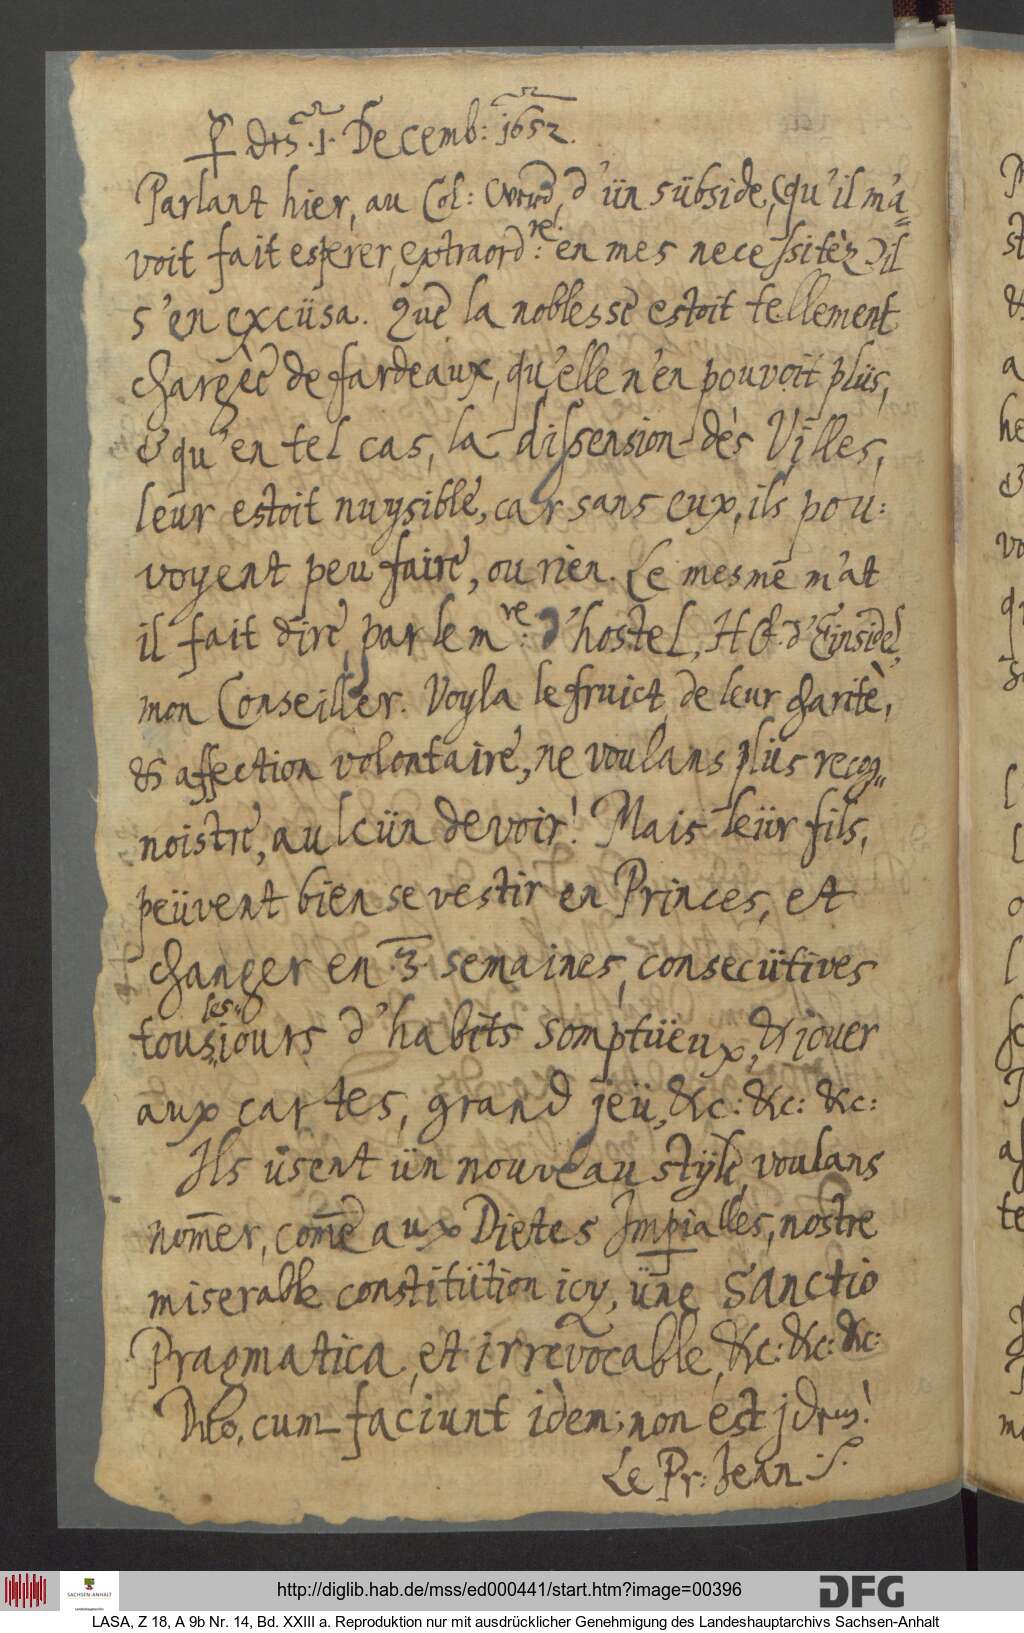 ☿ den .1. Decemb: 1652.
Parlant hier, au Col: d'ün sübside, qu'il m'a=
voit fait esperer, extraord:re: en mes necessitèz il
s'en excüsa. Que la noblesse estoit tellement
chargèe de fardeaux, qu'elle n'en pouvoit plüs,
& qu'en tel cas, la dissension dès Villes,
leur estoit nuysible, car sans eux, ils pou:
voyent peu faire, ou rien. Le mesme m'at
il fait dire, par le mre: d'hostel, H d'Einsidel,
mon Conseiller. Voyla le fruict de leur charitè,
& affection volontaire, ne voulans plüs recog=
noistre, aulcün devoir! Mais leür fils,
peüvent bien se vestir en Princes, et
changer en .3. semaines, consecütives
tous les jours d'habits somptüeux, & jouer
aux cartes, grand jeü, &c: &c: &c:
Ils üsent ün nouveau style, voulans
nom̅er, com̅e aux Dietes Imp̱ialles, nostre
miserable constitütion icy, üne Sanctio
Pragmatica, et irrevocable, &c: &c: &c:
Dito, cum faciunt idem; non est idem!
Le Pr: Jean
http://diglib.hab.de/mss/ed000441/start.htm?image=00396
SACHSEN-ANHALT
Landeshauptarchiv
DFG
LASA, Z 18, A 9b Nr. 14, Bd. XXIII a. Reproduktion nur mit ausdrücklicher Genehmigung des Landeshauptarchivs Sachsen-Anhalt